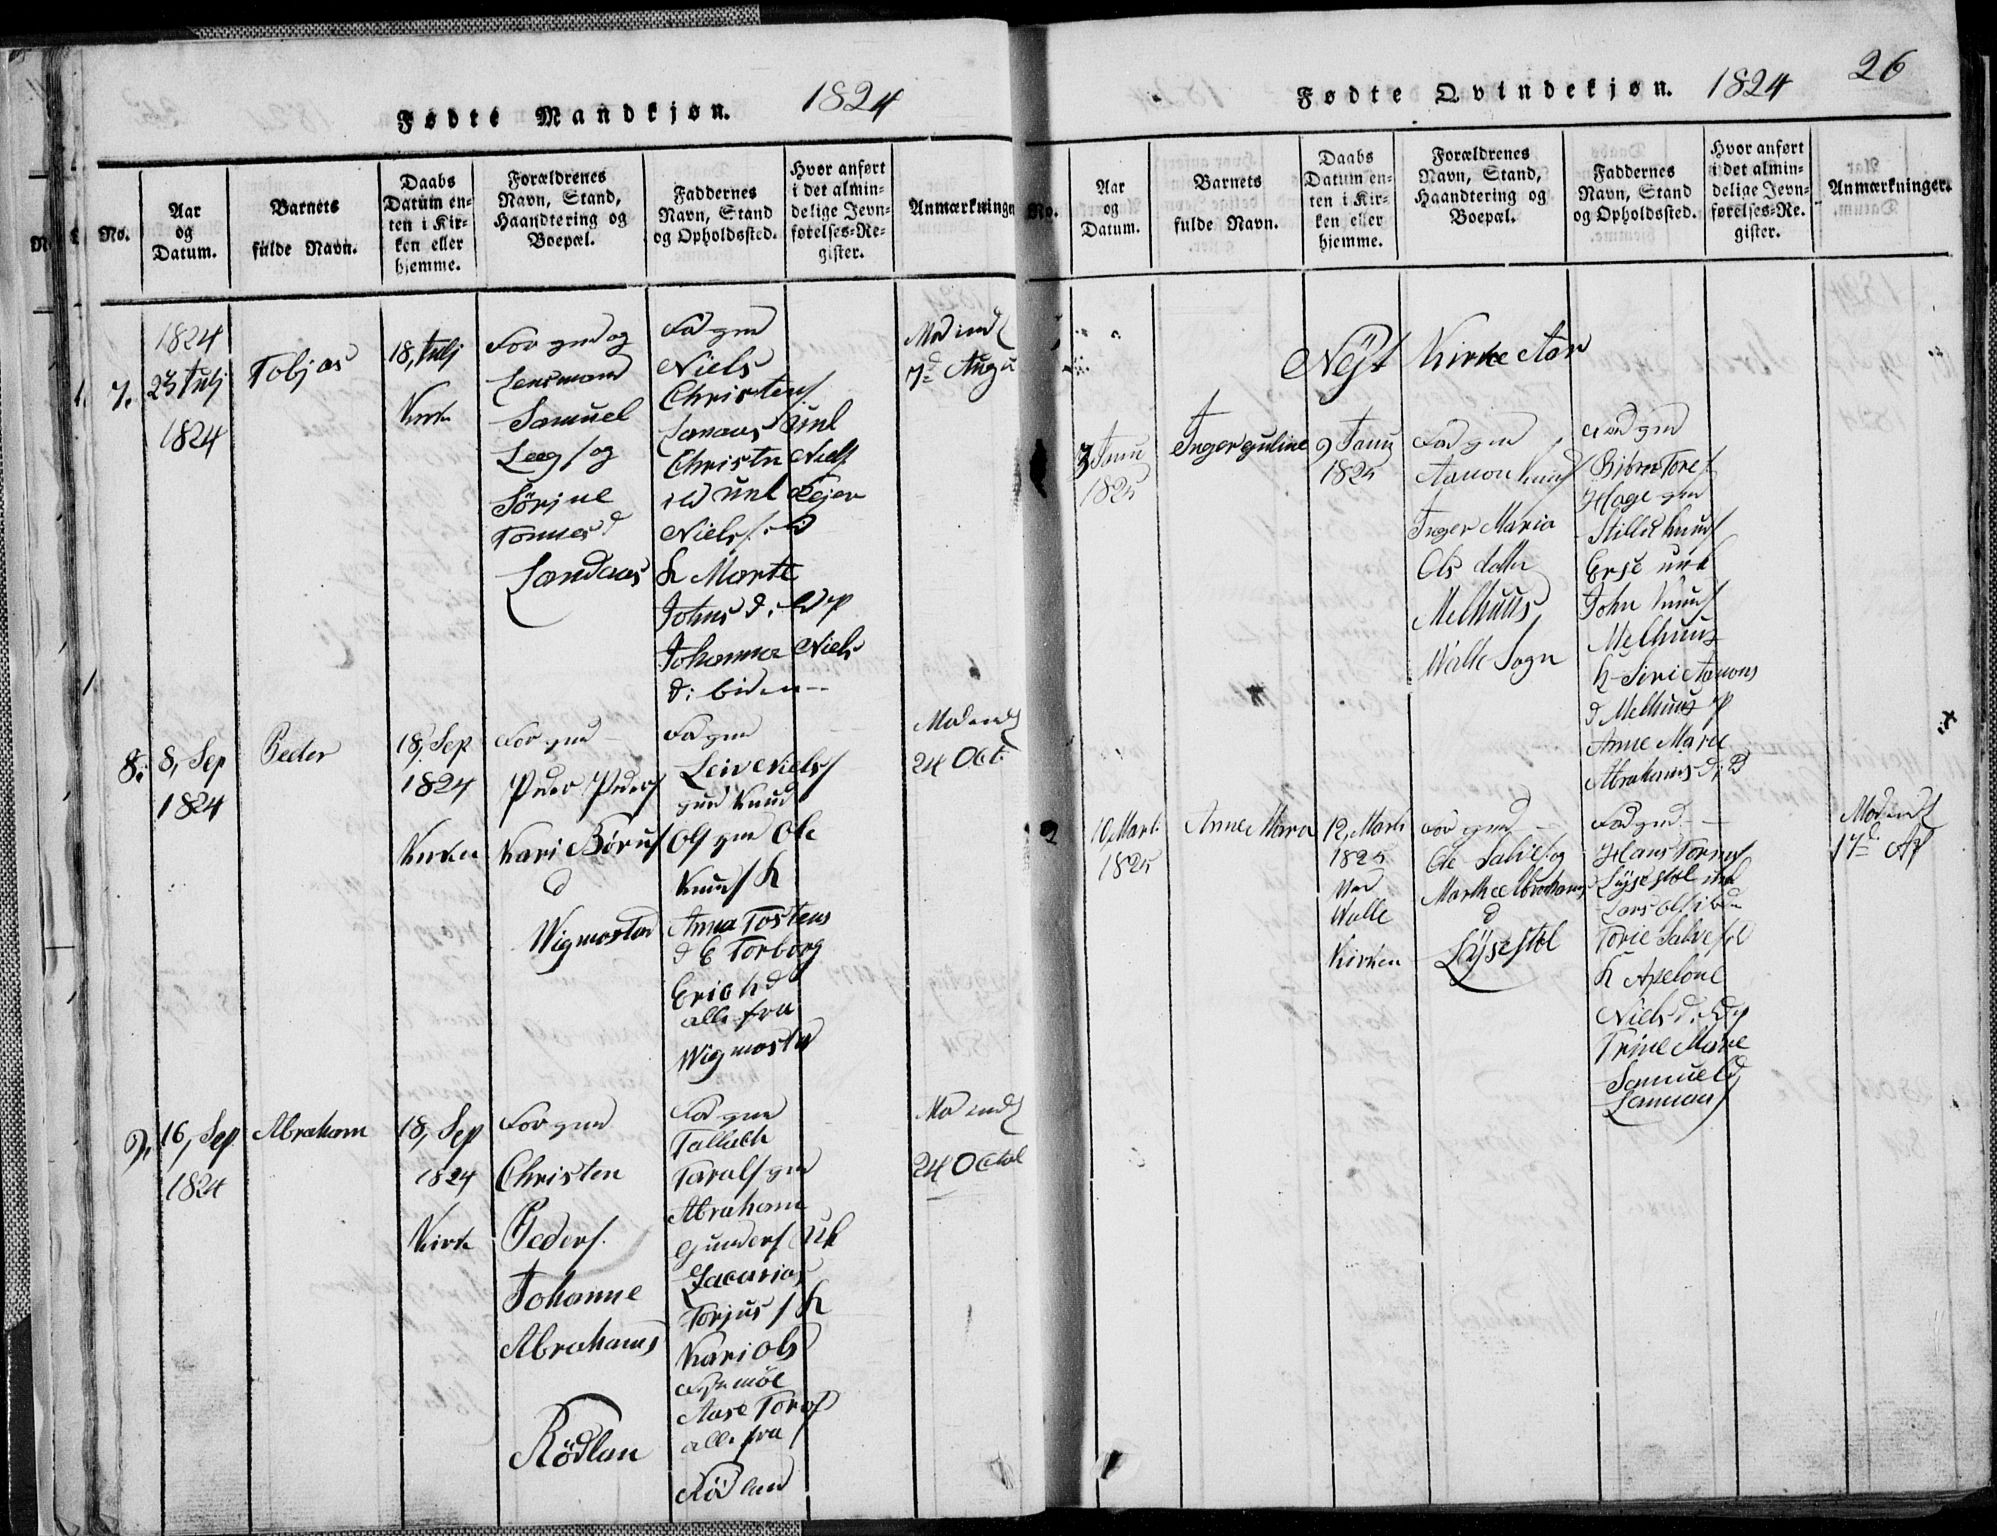 Fødte Mandkjøn. 1824
No.
Aar og Datum.
Barnets fulde Navn.
Daabs Datum enten i Kirken eller hjemme.
Forældrenes Navn, Stand, Haandtering og Boepæl.
Faddernes Navn, Stand og Opholdssted.
Hvor anført i det almindelige Jevnførelses-Register.
Anmærkninger
7.
1824
23 Julj
1824
Tobjas
18, Julj
Kirk
For gmd og
Lensmand
Samuel
og
Sørine
Tomesd
Landaas
Fad gm
Niels
Christens
Lanaas unl
Christen Niels
unl Pejer
Niels
k Marte
Johns d. p
Johanna Niels
d:
Mod
7d Augu
8.
8, Sep
1824
Peder
18, Sep
1824
Kirken
For gmd
Peder Peders
Kari Børus
d
Wigmostad
Fad gm
Leiv Niels
gmd Knud
Ols gm Ole
Knuds k
Anna Tostens
d Torborg
Erichd
alle fra
Wigmostd
Mod
24 Oct.
9.
16, Sep
1824
Abraham
18, Sep
1824
Kirk
For gmd
Christen
Peders.
Johanne
Abrahams
Rödlan
Fad gm
Tallach
Taralfs gm
Abraham
Gunders uk
Zacarias
Torjus k
Kari Ols
Aase
alle fra
Röd land
Mod
24 Octob
Fødte Qvindekjøn. 1824
26
No.
Aar og Datum.
Barnets fulde Navn.
Daabs Datum enten i Kirken eller hjemme.
Forældrenes Navn, Stand, Haandtering og Boepæl.
Faddernes Navn, Stand og Opholdssted.
Hvor anført i det almindelige Jevnførelses-Register.
Anmærkninger.
Nÿt Kirke Aar
3 Janu
1825
Inger guline
9 Janu
1825
Fad gm
Aanon Knuds
Inger Maria
Ols datter
Melhuus
Walle Sogn
Fad gm
Tores
Hage gm
Knuds
unl
John Knuds
Melhuus
k Siri Aanons
d Melhuus p
Anne Marie
Abrahams d:
2
10, Mart.
1825
Anne Maria
12, Marts
1825
Ved
Walle
Kirken
For gmd
Ole Salves og
Marthe Abrahams
d
Lÿsestøl
Fad gmd
Hans Tomes
Lÿsestøl
Lars Ols
Torie Salves
k Apelone
Niels d. p
Trine Marie
Samuelsd
Mod
17d Ap